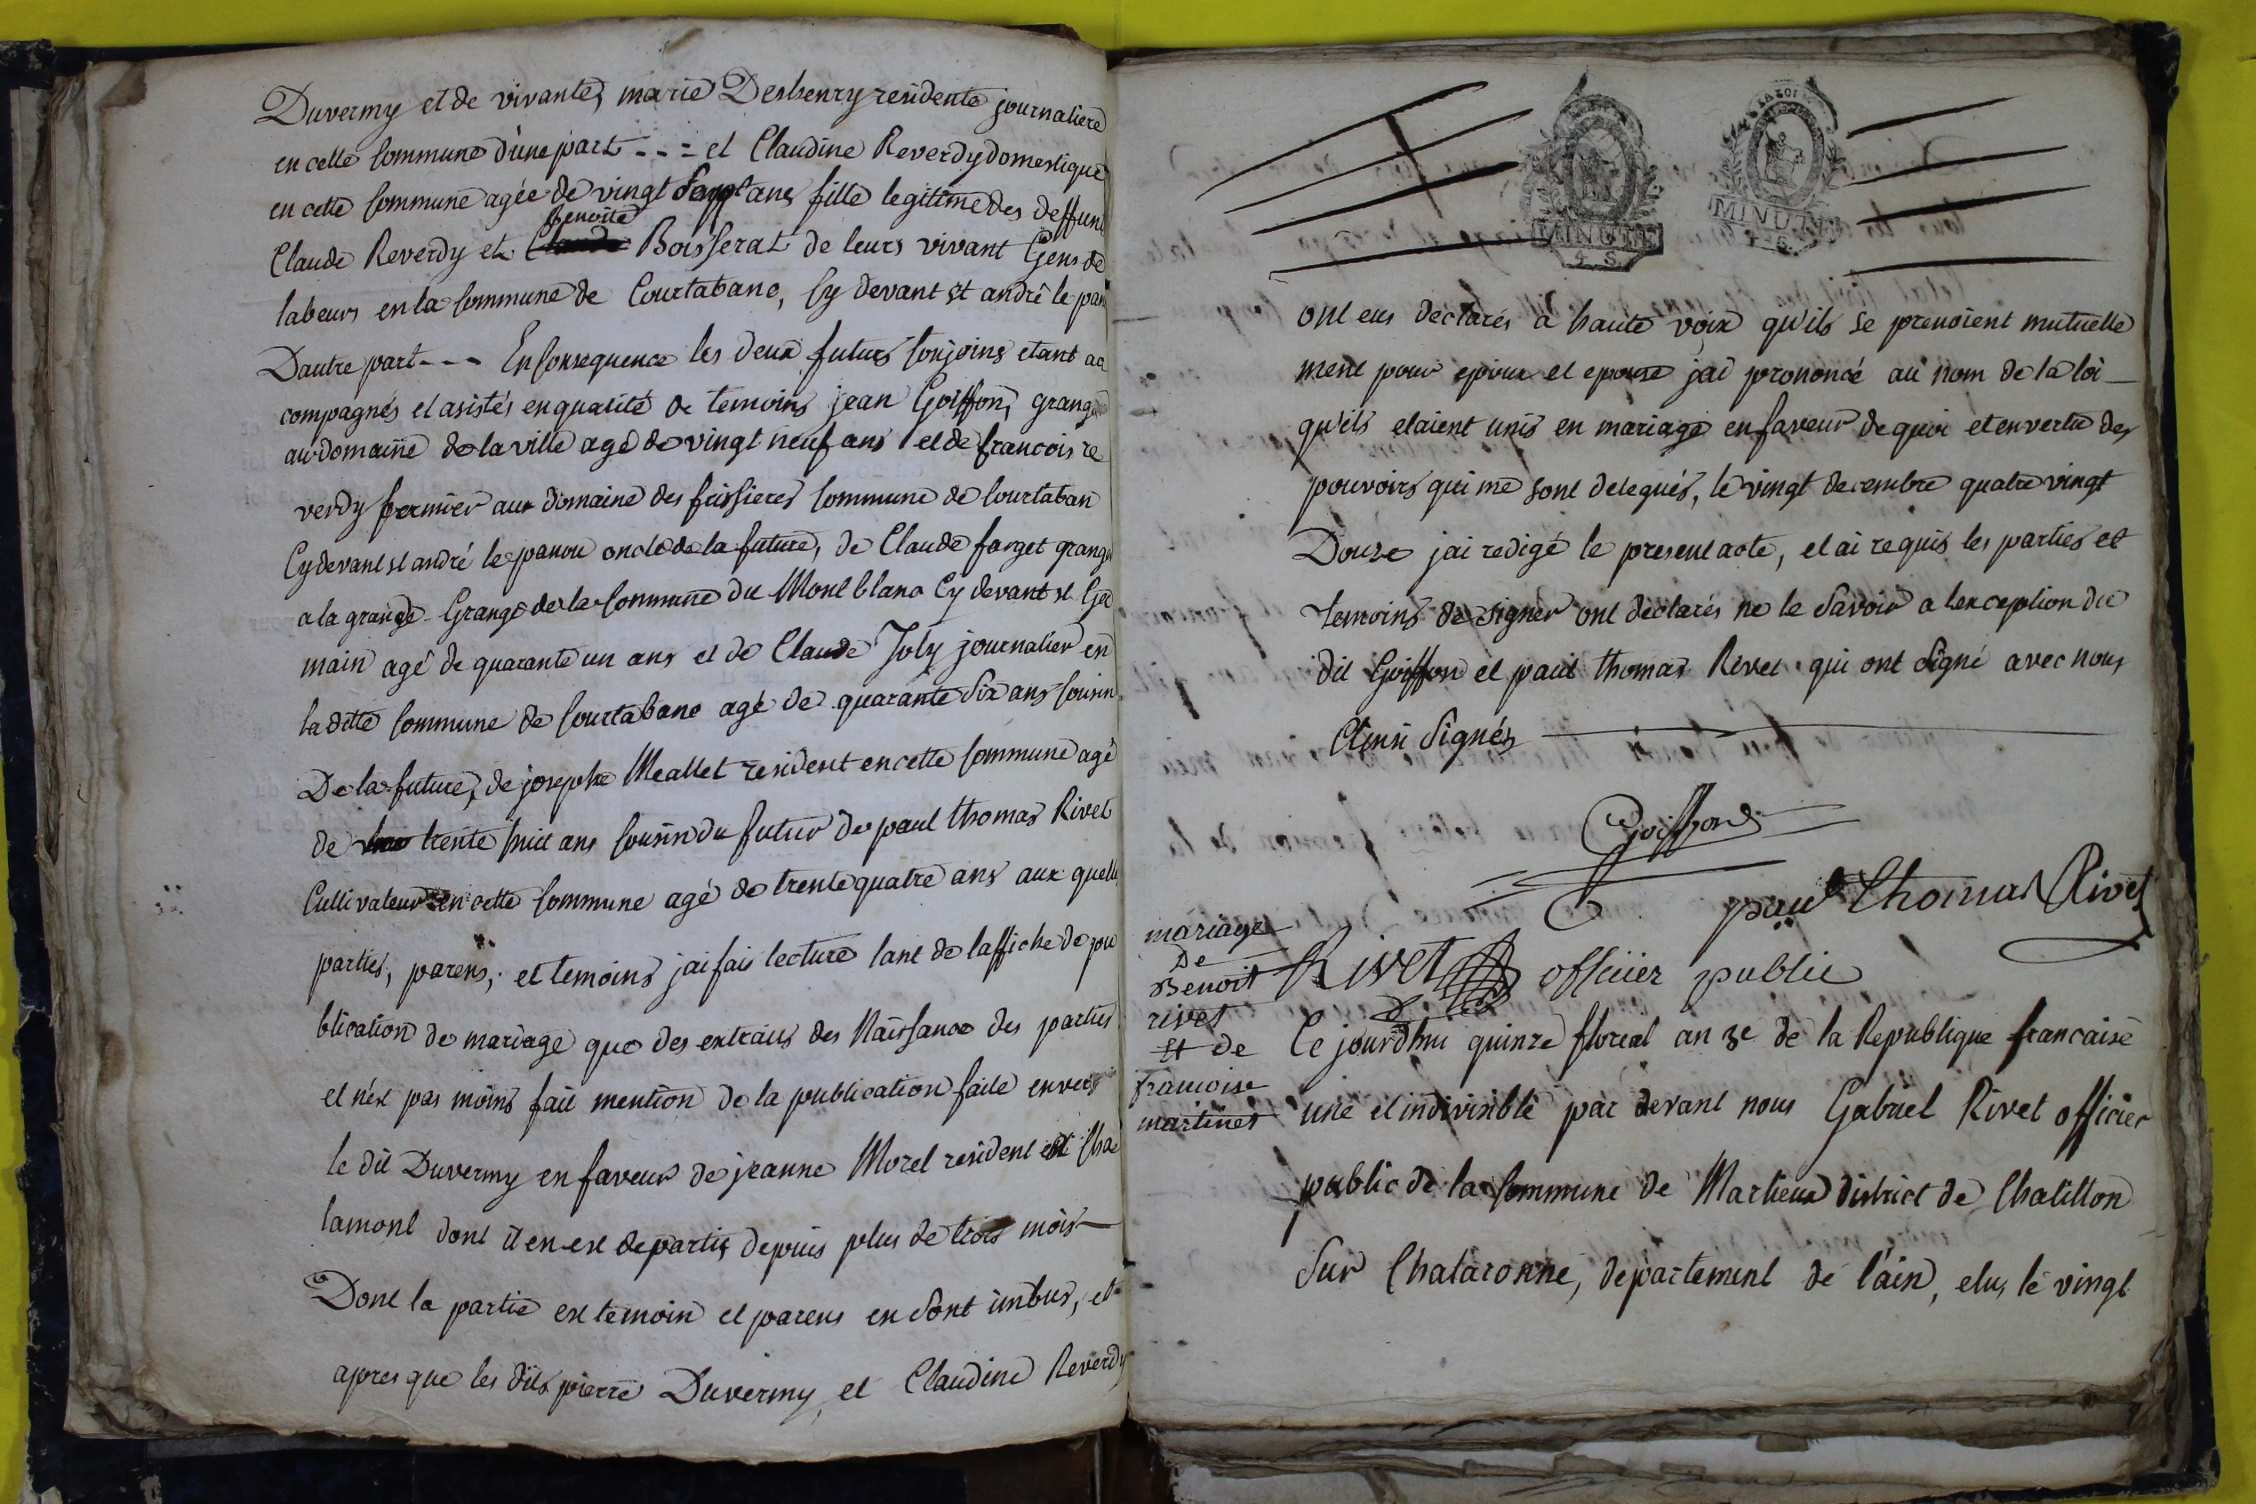 Duvermy et de vivante, marie Desbenry residente journaliere
en cette Commune d'une part - - - et Claudine Reverdy domestique
en cette Commune agée de vingt Sept ans fille legitime des deffunt
benoite
Claude Reverdy et Boisserat de leurs vivant Gens de
labeurs en la Commune de Courtabane, Cy devant st andré le pan
Dautre part - - - En Consequence les deux futurs Conjoins etant ac
compagnés et asistés en qualité de temoins jean Goiffon, grang
au domaine de la ville agé de vingt neuf ans et de francois re
verdy fermier au domaine des frissieres Commune de Courtaban
Cy devant st andré le panou oncle de la future, de Claude farget grang
a la grande Grange de la Commune du Mont blanc Cy devant st Ger
main agé de quarante un ans et de Claude Joly journalier en
la ditte Commune de Courtabane agé de quarante Six ans Cousin
De la future, de josephe Meallet resident en cette Commune agé
de trente huit ans Cousin du futur de paul thomas Rivet
Cultivateur en cette Commune agé de trente quatre ans aux quelle
parties, parens, et temoins jai fais lecture tant de laffiche de pu
blication de mariage que des extraits des Naissance des parties
et n'ex pas moins fait mention de la publication faite envers
le dit Duvermy en faveur de jeanne Morel resident Cha
lamont dont il en est departis depuis plus de trois mois
Dont la partie ex temoin et parens en sont imbus, et
apres que les dits pierre Duvermy, et Claudine Reverdy
LA LOI
MINUTE
4. S.
MINUTE
4. S.
ont eus declarés a haute voix qu'ils se prenoient mutuelle
ment pour epoux et epouse jai prononcé au nom de la loi
qu'ils etaient unis en mariage en faveur de quoi et en vertu des
pouvoirs qui me sont delegués, le vingt decembre quatre vingt
Douze jai redigé le present acte, et ai requis les parties et
temoins de signer ont declarés ne le Savoir a lexception du
dit Goiffon et paul thomas Rivet qui ont Signé avec nous
Signés
Goiffon
paul Thomas Rivet
Rivet officier public
mariage
De
Benoit
rivet
Et de
francoise
martines
Ce jourdhui quinze floreal an 3e de la Republique francaise
une et indivisible par devant nous Gabriel Rivet officier
public de la Commune de Marlieux district de Chatillon
Sur Chalaronne, departement de l'ain, elus le vingt